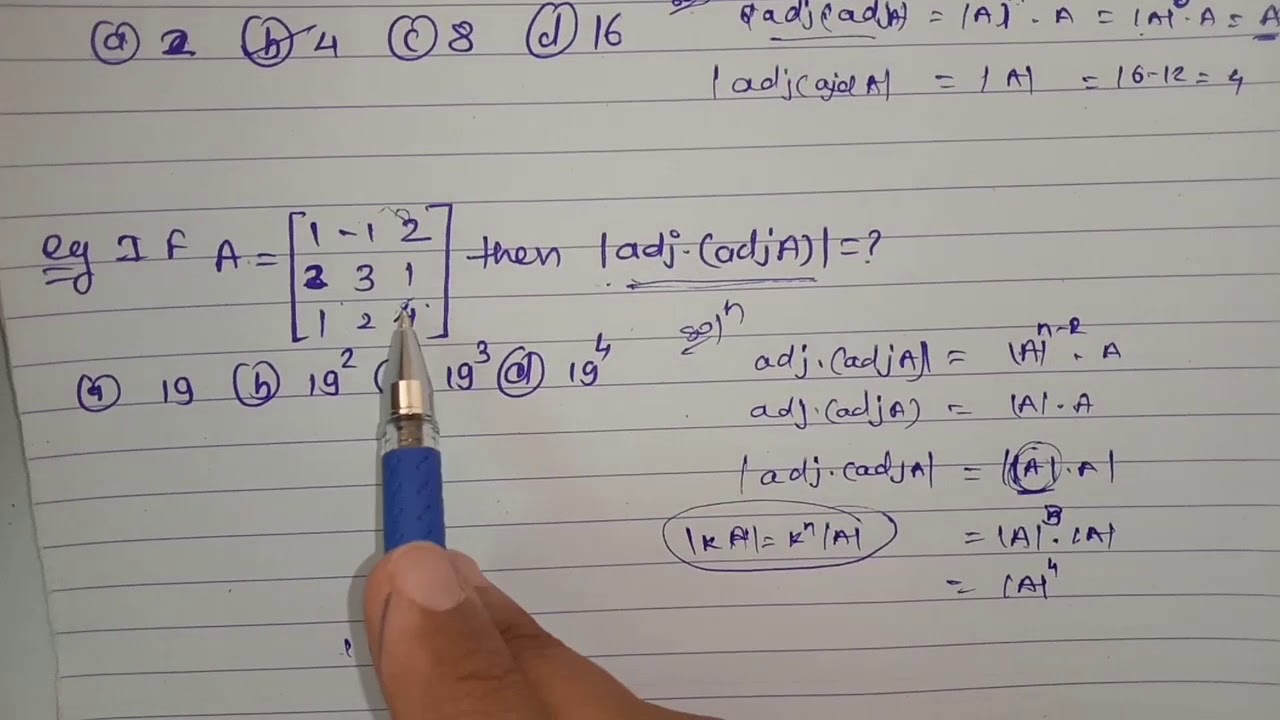 (a) 2 (b) 4 (c) 8 (d) 16
adj(adjA) = |A| · A = |A|⁰ · A = A
|adj(ajdA| = |A| = 16-12 = 4
eg If A = [1 -1 2
2 3 1
1 2 4] then |adj·(adjA)| = ?
(a) 19 (b) 19² 19³ (d) 19⁴
solⁿ
adj·(adjA) = |A|ⁿ⁻² · A
adj·(adjA) = |A| · A
|adj·(adjA| = ||A| · A|
|KA| = Kⁿ|A| = |A|³ · |A|
= |A|⁴